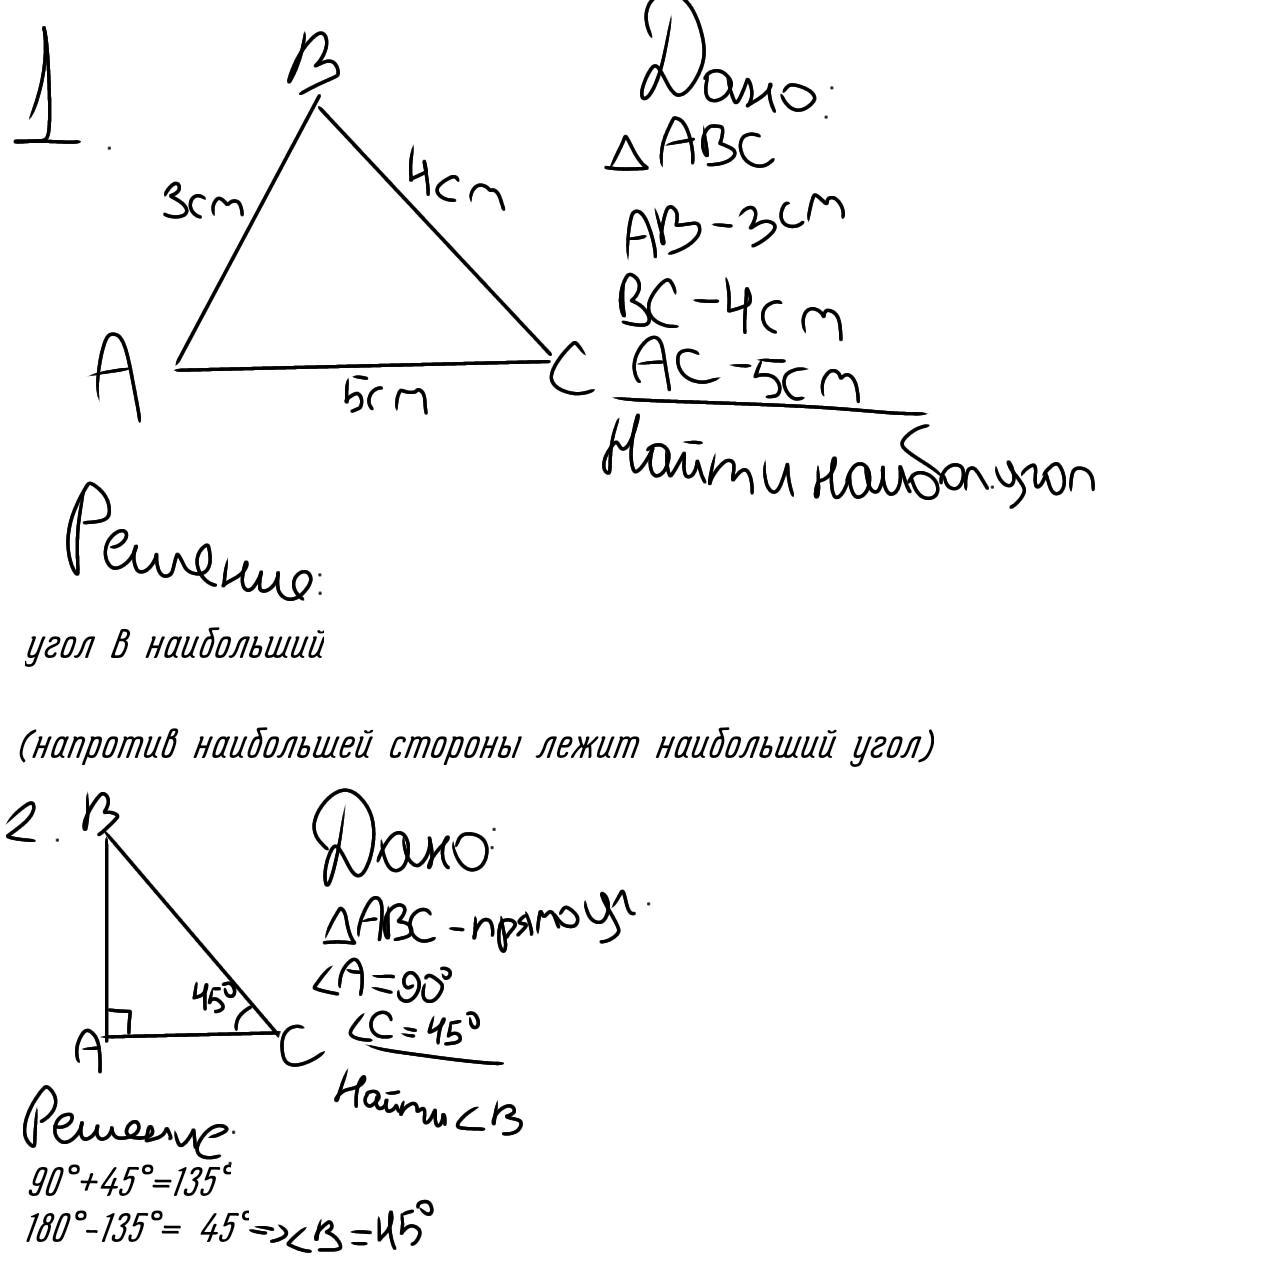 1.
B
Дано:
△ABC
3cm
4cm
AB-3cm
BC-4cm
A
C
AC-5cm
5cm
Найти наибол.угол
Решение:
угол В наибольший
(напротив наибольшей стороны лежит наибольший угол)
2.
B
Дано:
△ABC-прямоуг.
∠A=90°
45°
∠C=45°
A
C
Найти ∠B
Решение:
90°+45°=135°
180°-135°= 45°=>∠B=45°